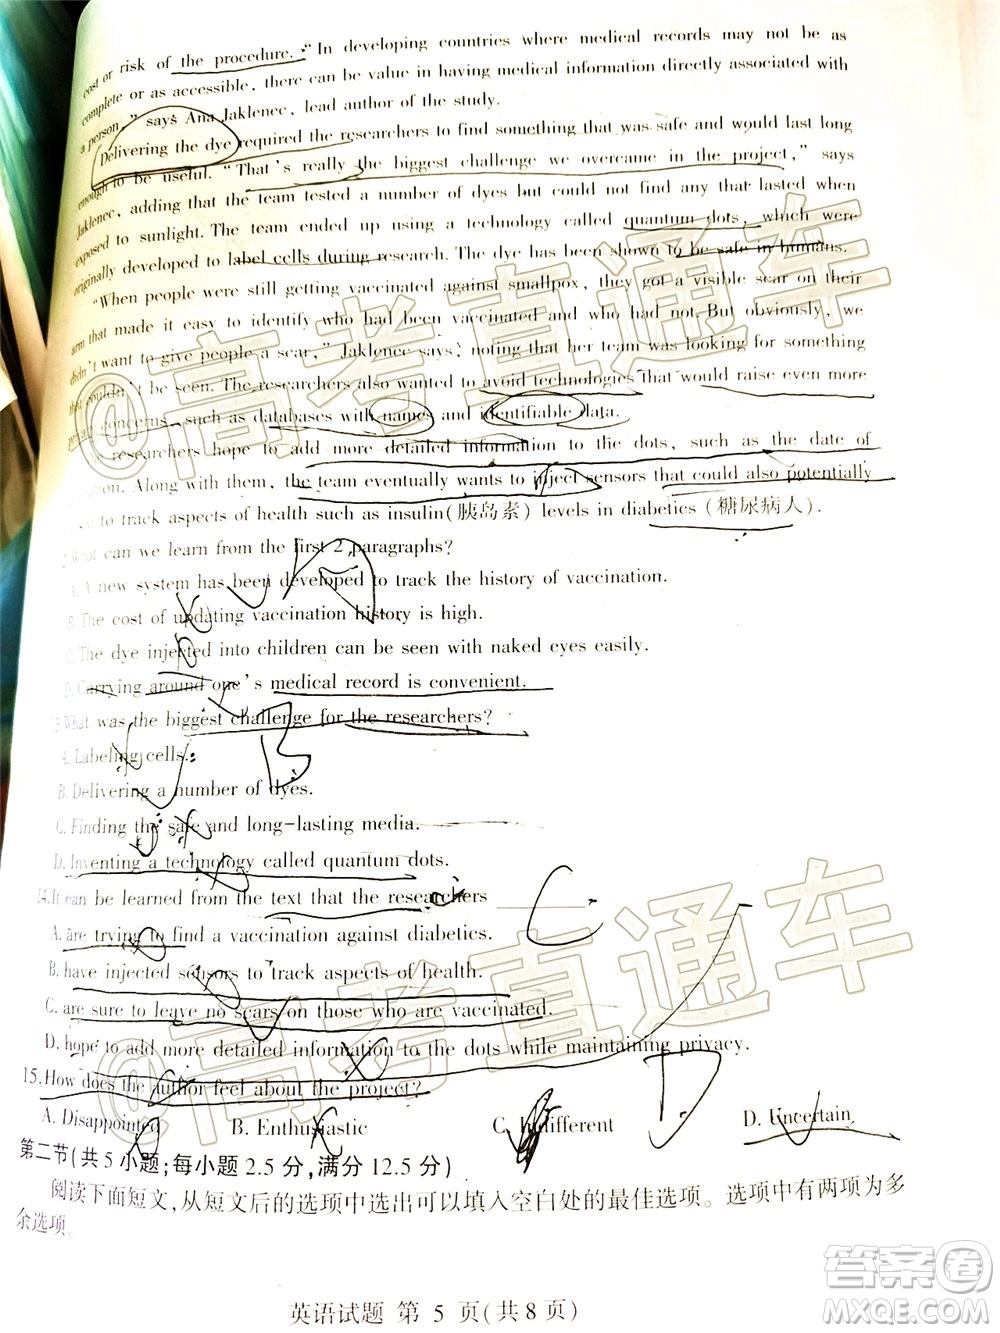 cost or risk of the procedure. "In developing countries where medical records may not be as
complete or as accessible, there can be value in having medical information directly associated with
a person," says Ana Jaklenec, lead author of the study.
Delivering the dye required the researchers to find something that was safe and would last long
enough to be useful. "That's really the biggest challenge we overcame in the project," says
Jaklenec, adding that the team tested a number of dyes but could not find any that lasted when
exposed to sunlight. The team ended up using a technology called quantum dots, which were
originally developed to label cells during research. The dye has been shown to be safe in humans.
"When people were still getting vaccinated against smallpox, they got a visible scar on the
arm that made it easy to identify who had been vaccinated and who had not. But obviously, we
didn't want to give people a scar," Jaklenec says, noting that her team was looking for something
that couldn't be seen. The researchers also wanted to avoid technologies that would raise even more
concerns, such as databases with names and identifiable data.
researchers hope to add more detailed information to the dots, such as the date of
Along with them, the team eventually wants to inject sensors that could also potentially
to track aspects of health such as insulin(胰岛素) levels in diabetics (糖尿病人).
What can we learn from the first 2 paragraphs?
A. A new system has been developed to track the history of vaccination.
B. The cost of updating vaccination history is high.
C. The dye injected into children can be seen with naked eyes easily.
D. Carrying around one's medical record is convenient.
What was the biggest challenge for the researchers?
A. Labeling cells.
B. Delivering a number of dyes.
C. Finding the safe and long-lasting media.
D. Inventing a technology called quantum dots.
14. It can be learned from the text that the researchers ______
A. are trying to find a vaccination against diabetics.
B. have injected sensors to track aspects of health.
C. are sure to leave no scars on those who are vaccinated.
D. hope to add more detailed information to the dots while maintaining privacy.
15. How does the author feel about the project?
A. Disappointed B. Enthusiastic C. Indifferent D. Uncertain
第二节(共5小题;每小题2.5分,满分12.5分)
阅读下面短文,从短文后的选项中选出可以填入空白处的最佳选项。选项中有两项为多
余选项。
英语试题 第 5 页(共8页)
B
C
D
@高考直通车
@高考直通车
答案圈
MXQE.COM